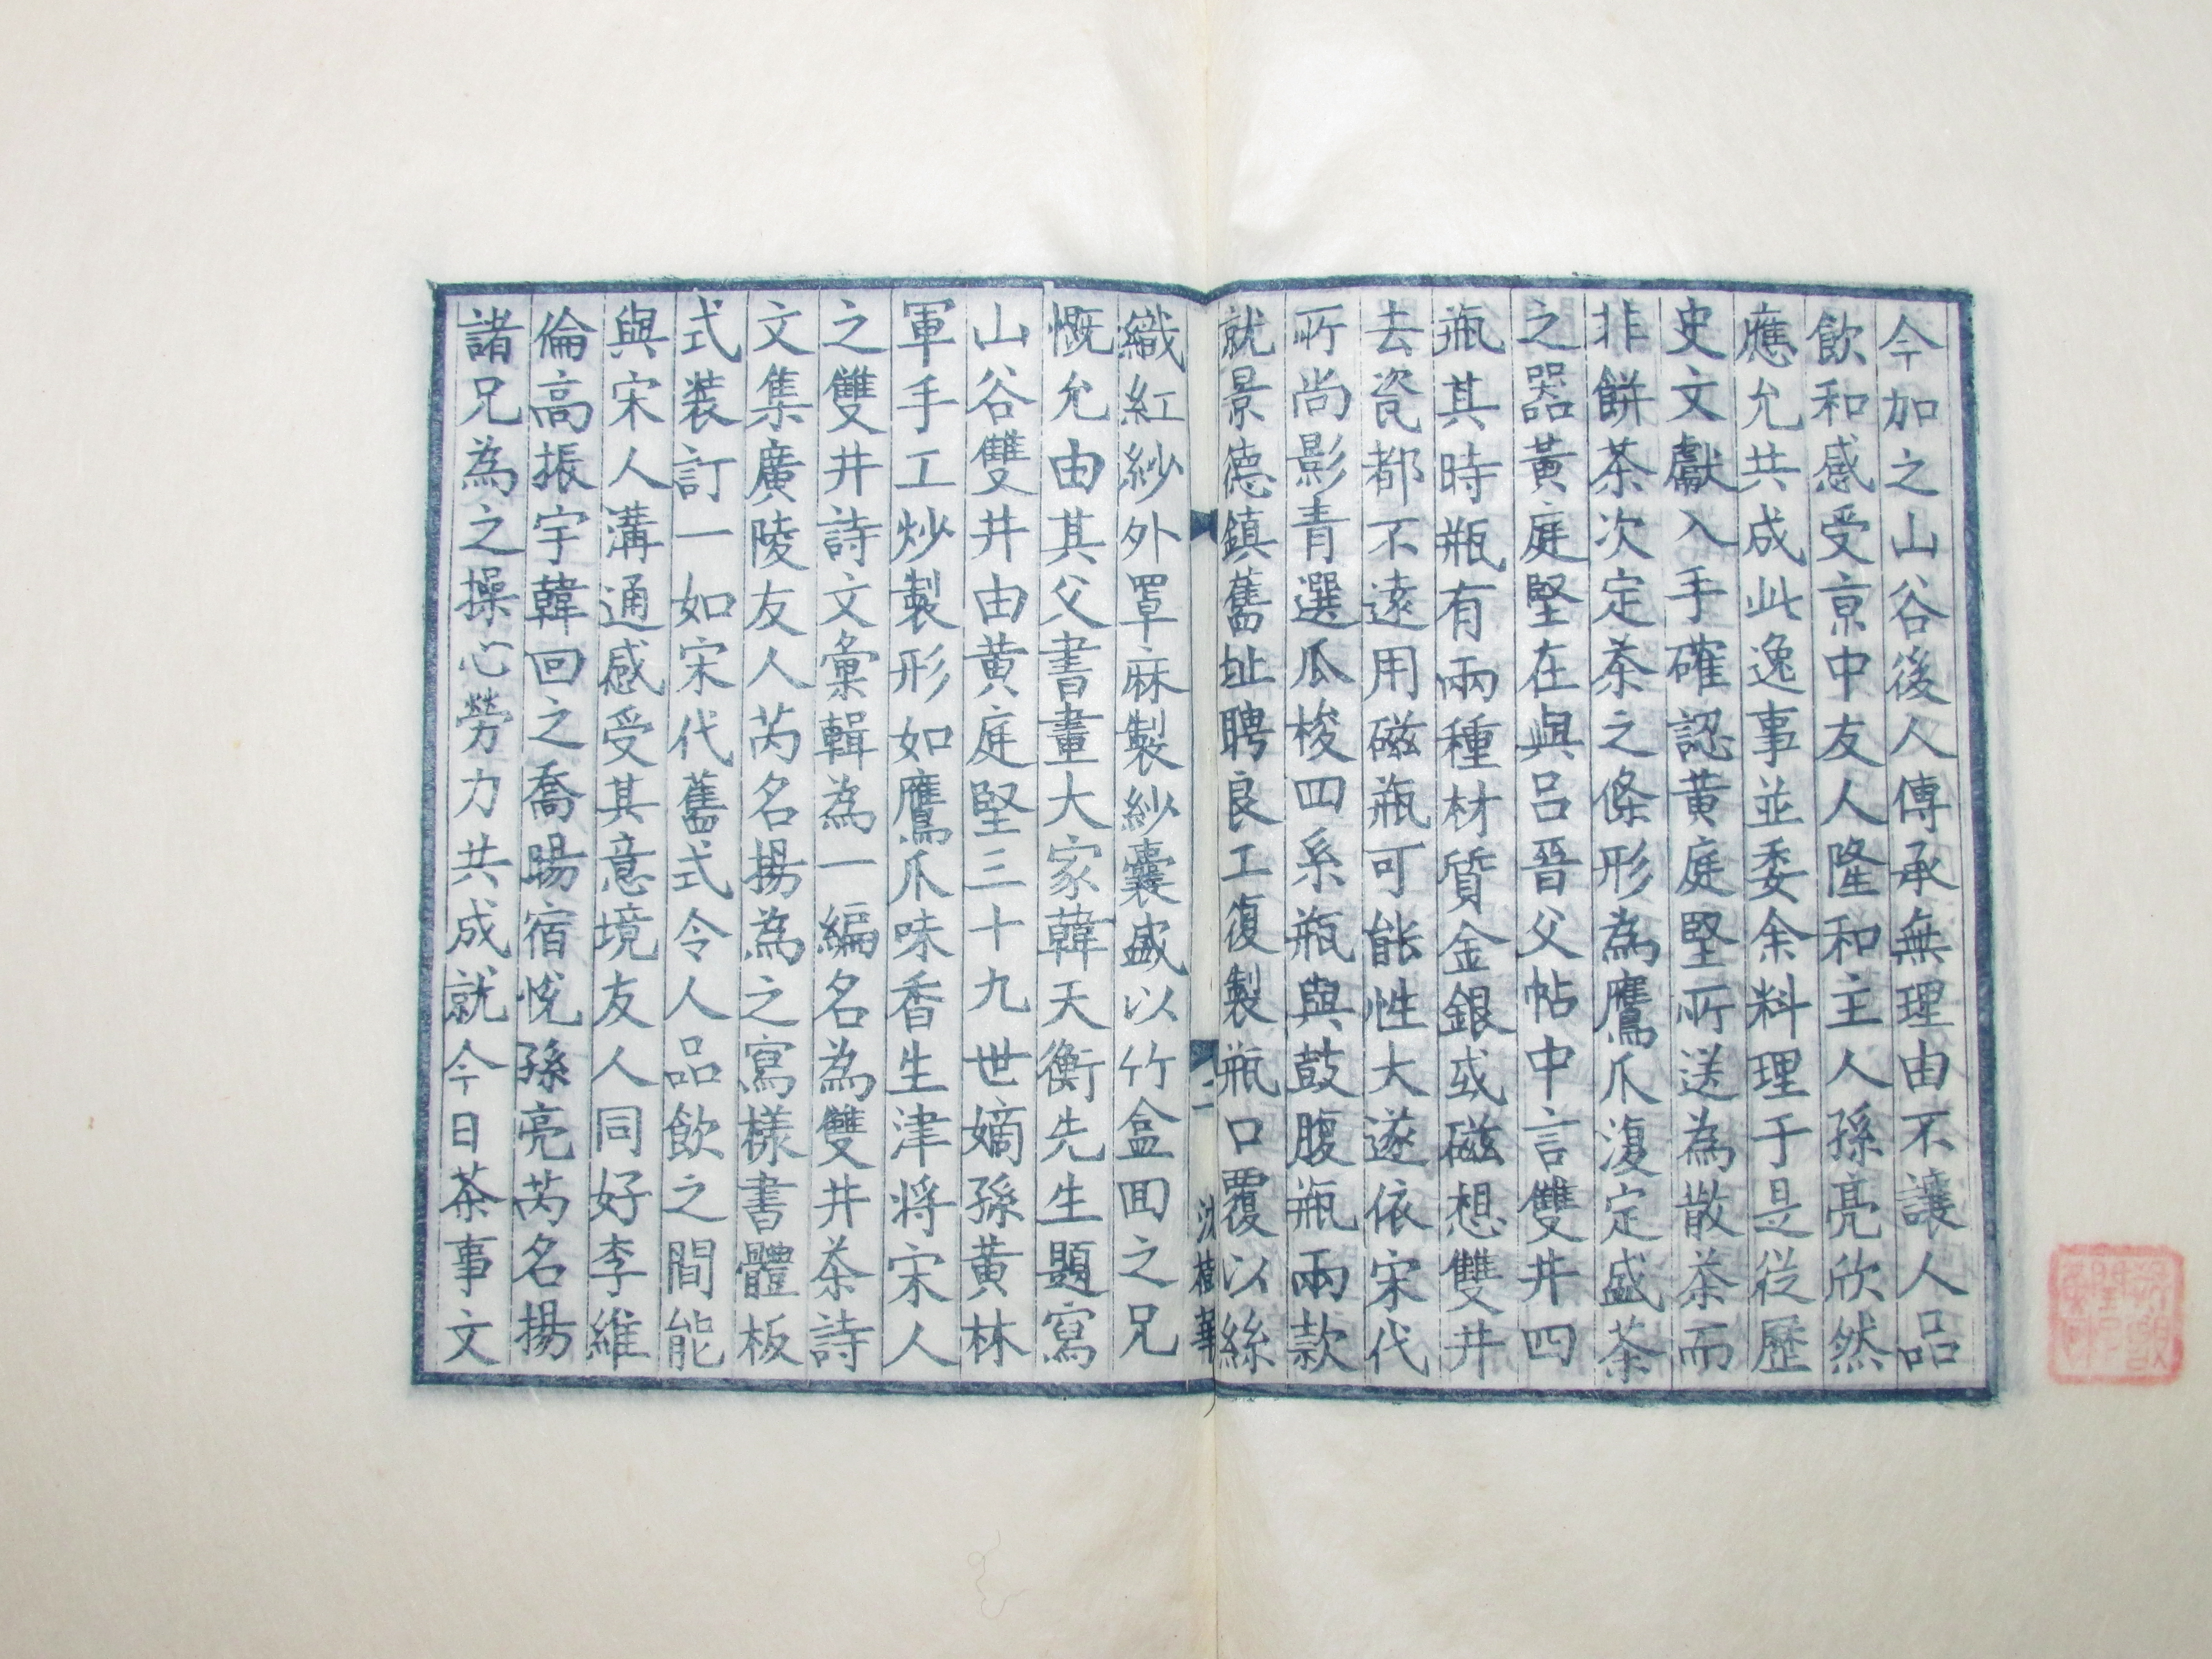 今加之山谷後人傳承無理由不讓人品
飲和感受京中友人隆和主人孫亮欣然
應允共成此逸事並委余料理于是從歷
史文獻入手確認黄庭堅所送為散茶而
非餅茶次定茶之條形為鷹爪復定盛茶
之器黃庭堅在與呂晉父帖中言雙井四
瓶其時瓶有兩種材質金銀或磁想雙井
去瓷都不遠用磁瓶可能性大遂依宋代
所尚影青選瓜棱四系瓶與鼓腹瓶兩款
就景德鎮舊址聘良工復製瓶口覆以絲
二
沈樹華
織紅紗外罩麻製紗囊盛以竹盒囬之兄
慨允由其父書畫大家韓天衡先生題寫
山谷雙井由黄庭堅三十九世嫡孫黄林
軍手工炒製形如鷹爪味香生津将宋人
之雙井詩文彙輯為一編名為雙井茶詩
文集廣陵友人芮名揚為之寫樣書體板
式装訂一如宋代舊式令人品飲之間能
與宋人溝通感受其意境友人同好李維
倫高振宇韓回之喬暘宿悅孫亮芮名揚
諸兄為之操心勞力共成就今日茶事文